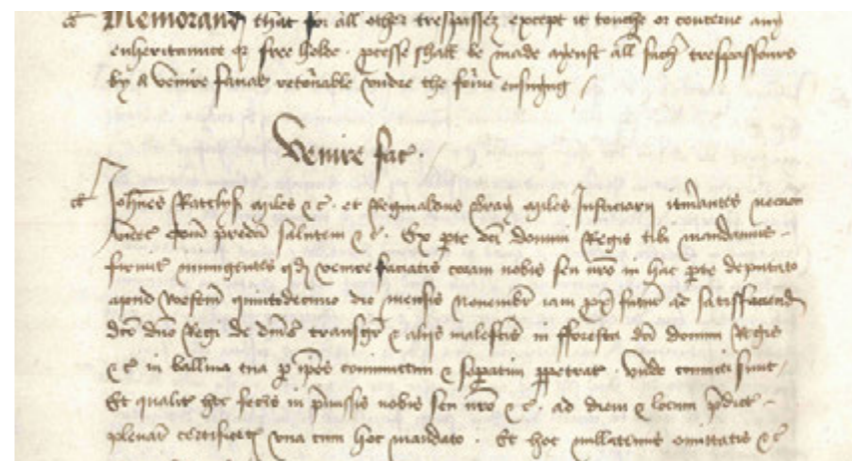 Memorand that for all other trespassez except it touche or concerne any
enheritaunce or free holde. processe shall be made ayenst all such trespassours
by a venire facias retornable undre the forme ensuyng /
Venire fac.
Johnes Ratclyff miles &c. et Reginaldus Bray miles Justiciarii itinantes necnon
predci salutem &c. Ex pte dci domini Regis tibi mandamus
firmit iniungentes qd venire faciatis coram nobis seu nro in hac pte deputato
apud quintodecimo die mensis Novembr iam px futur ad satisfaciend
dco dno Regi de diuis transgr & aliis malefcis in fforesta dci domini Regis
&c in balliua tua p ipos commissm & sepatim ppetrat. unde conuicti sunt
Et qualit hoc fecis in pmissis nobis seu nro &c. ad diem & locum pdict
plenar certificetis una cum hoc mandato. Et hoc nullatenus omittatis &c